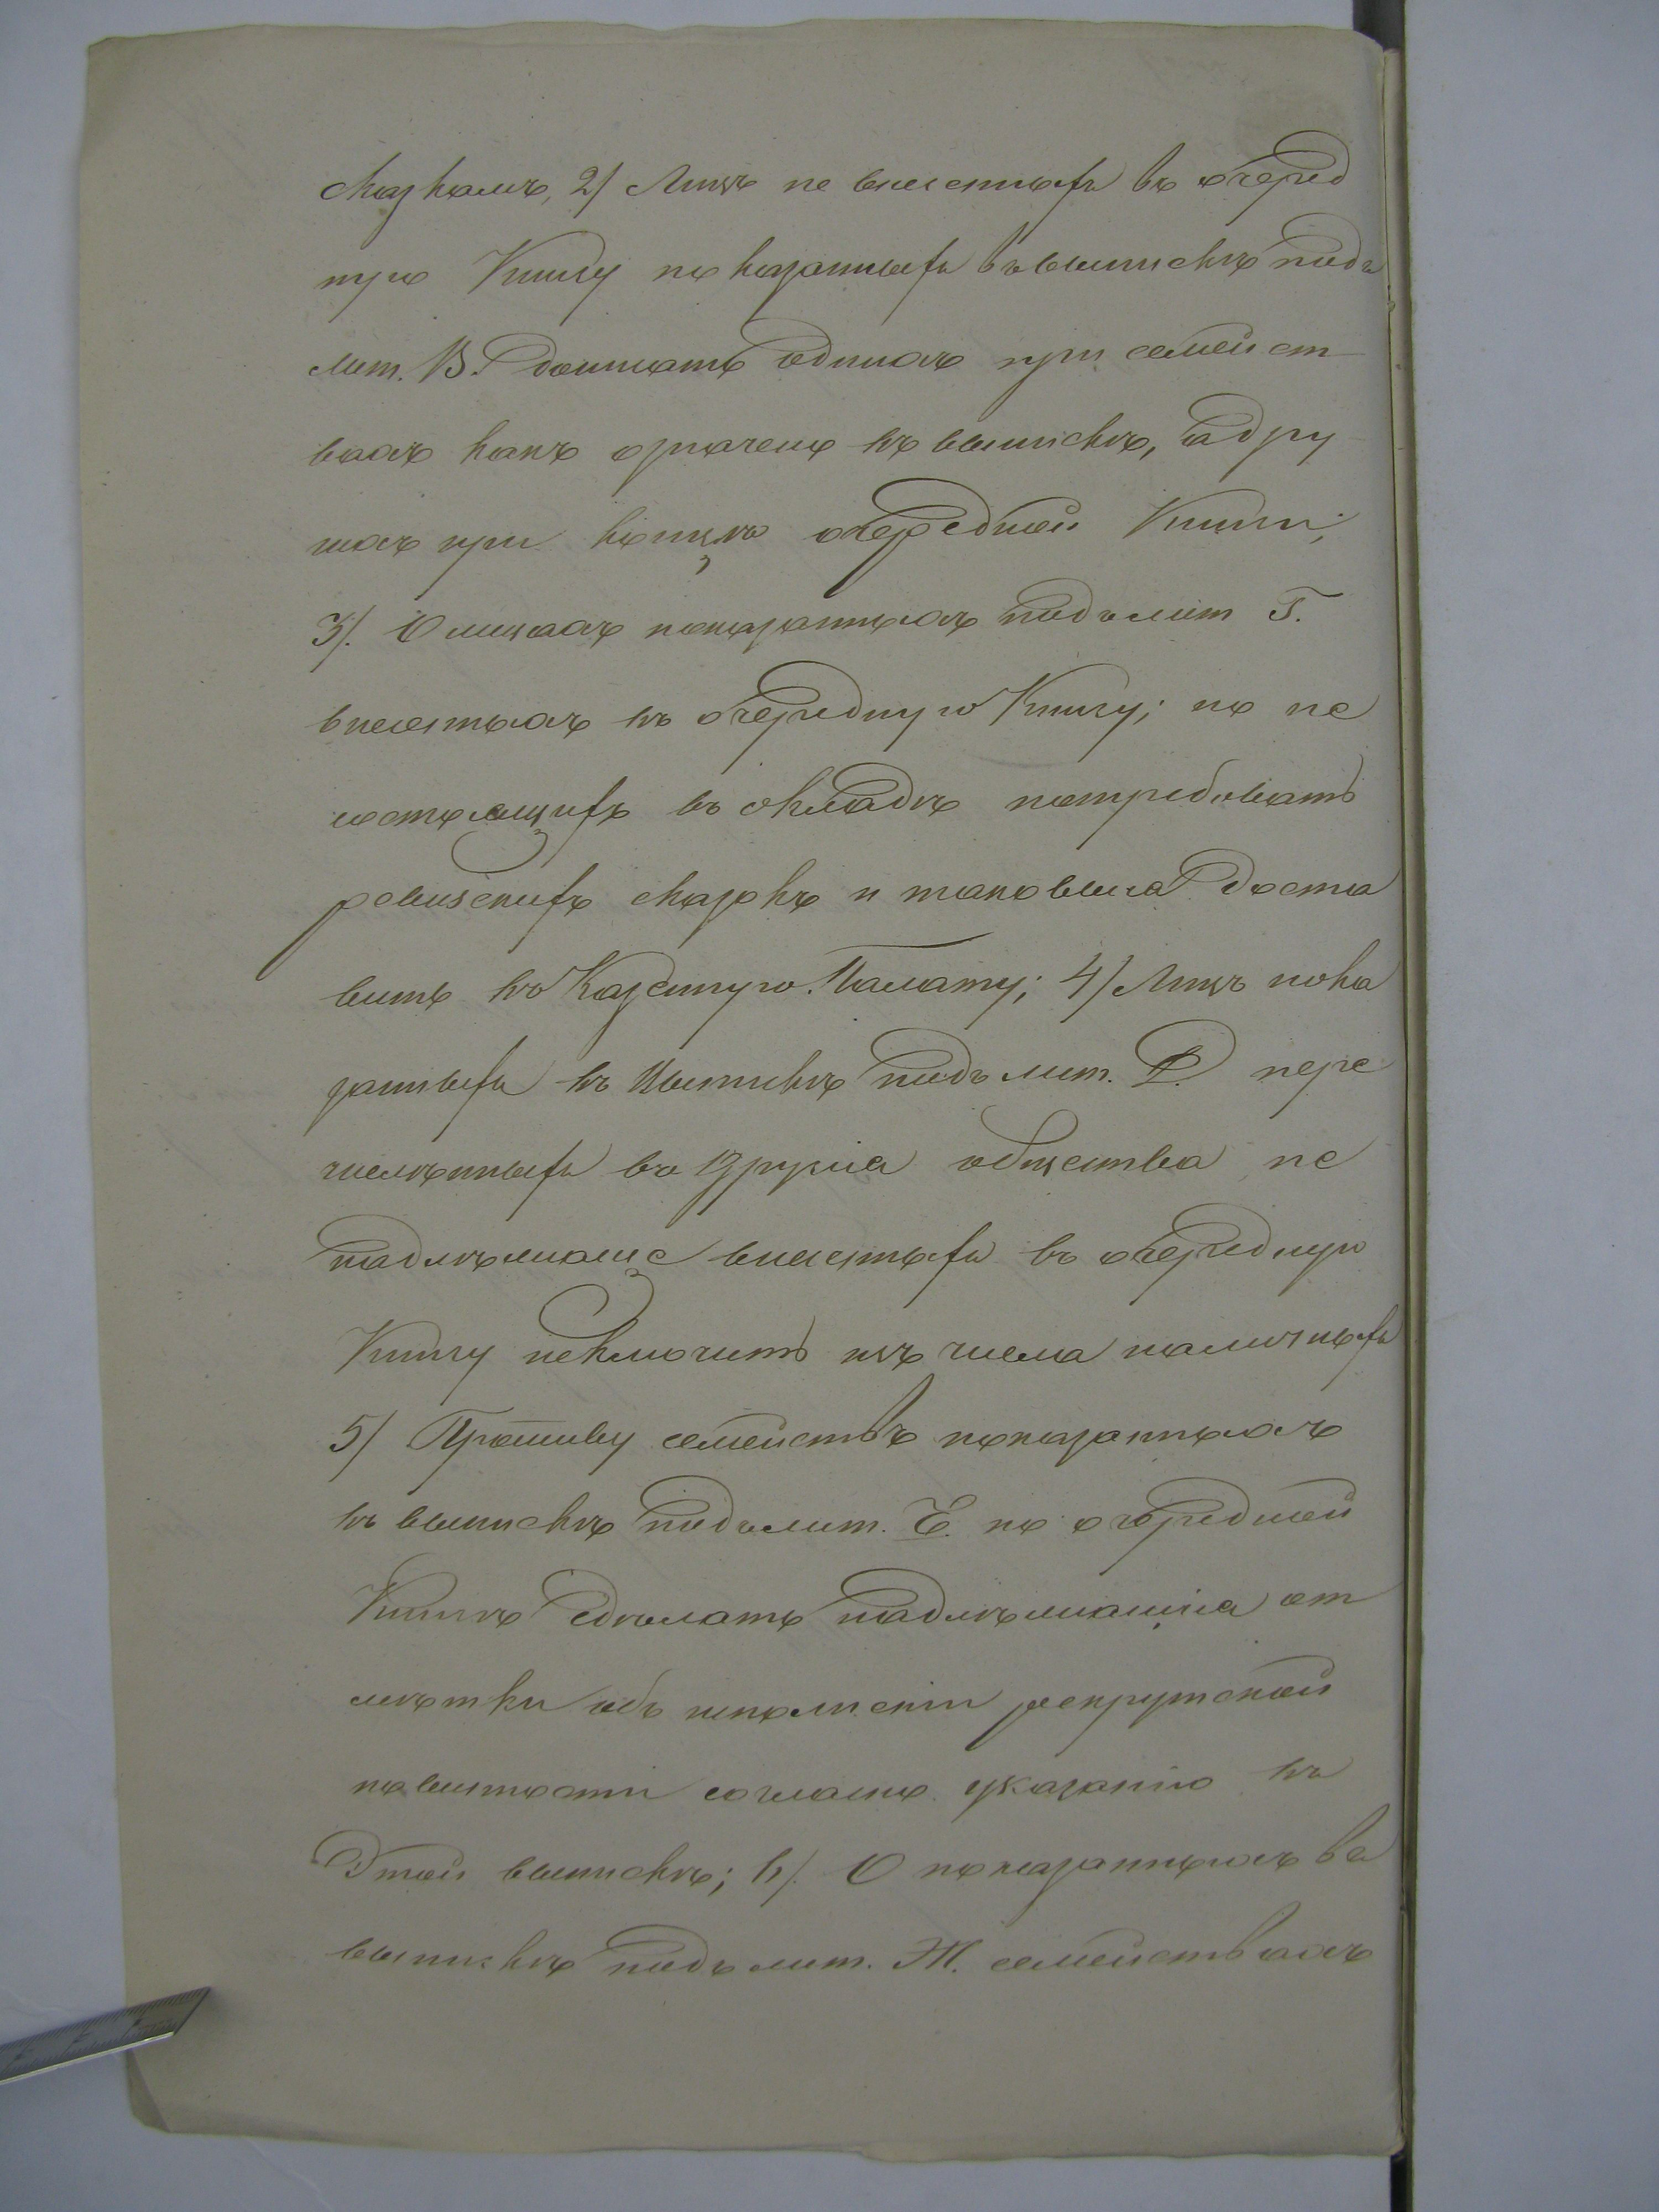 сказкамъ, 2/ Лицъ не внесенныхъ въ очеред
ную Книгу показанныхъ въ выпискѣ подъ
лит. В. дописать однихъ при семейст
вахъ какъ означено въ выпискѣ, а дру
гихъ при концѣ очередной Книги;
3/. О лицахъ показанныхъ подъ лит Г.
внесенныхъ въ очередную Книгу; но не
состоящихъ въ окладѣ потребовать
ревизскихъ сказкъ и таковыя доста
вить въ Казенную Палату; 4/ Лицъ пока
занныхъ въ выпискѣ подъ лит. Д. пере
численныхъ въ другія общества не
надлѣжаще внесенныхъ въ очередную
Книгу исключить изъ числа наличныхъ
5/ Противу семействъ показанныхъ
въ выпискѣ подъ лит. Е. по очередной
Книгѣ сдѣлать надлѣжащія от
мѣтки объ исполненіи рекрутской
повинности согласно указанію въ
Этой выпискѣ; 6/. О показанныхъ въ
выпискѣ подъ лит. Ж. семействахъ